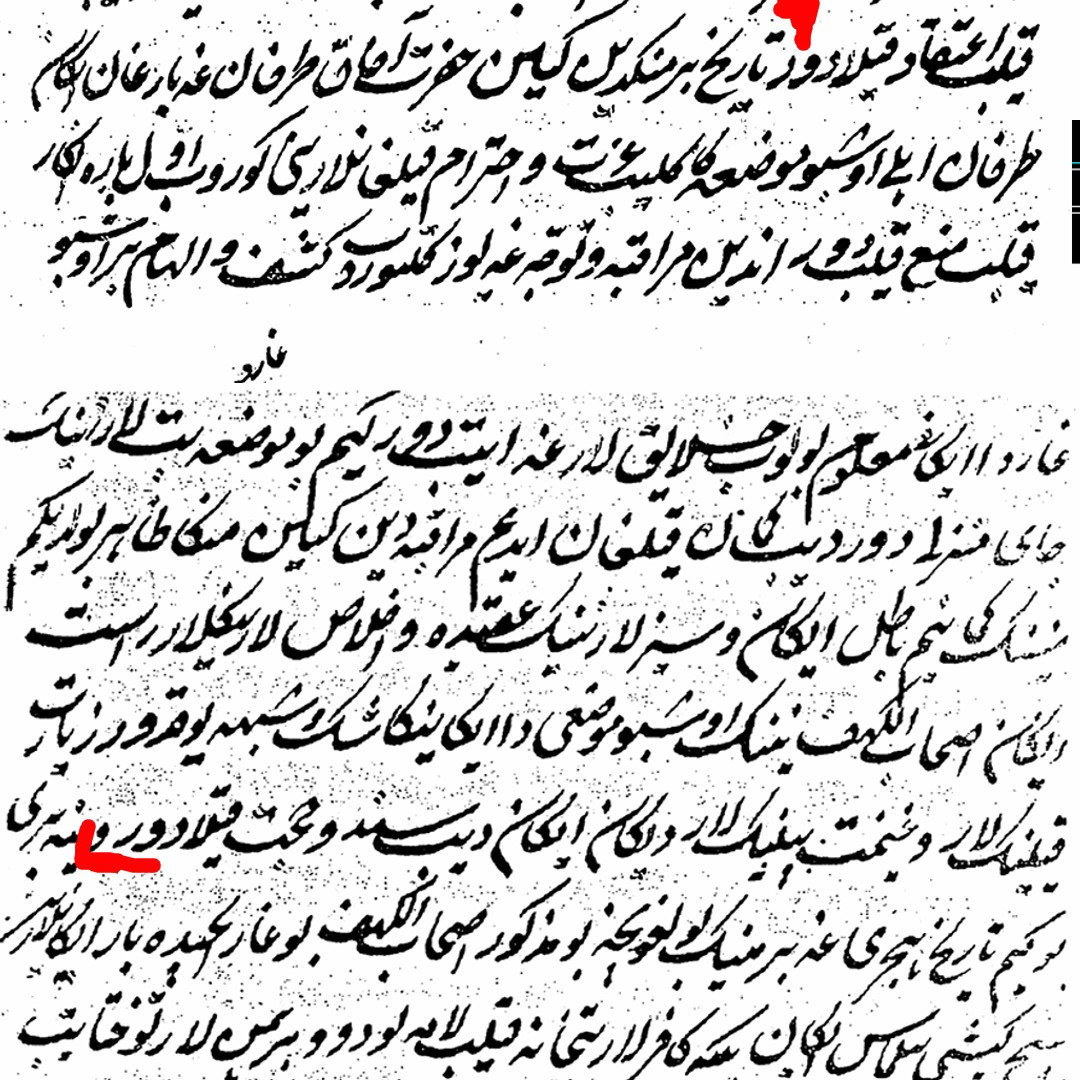 قیلیب اعتقاد قیلادور تاریخ بر مینکدین کیین حضرت آفاق طرفان غه بارغان ایکان
طرفان اهلی اوشبو موضعه کا کلیب عزت و احترام قیلغانلارینی کوروب اول باره ایکار
قیلیب منع قیلیب دور اندین مراقبه و توجه غه اولوز کلتوردی کشف و الهام بر اوشبو
غاردا
غاردا ایکان معلوم بولوب خلایق لارغه ایتیب دور کیم بو موضعه بیت لارنینک
جای منزل دور دیب کمان قیلغان ایدیم مراقبه دین کیین منکا ظاهر بولدی کیم
مننک کمانیم باطل ایکان و سیزلارنینک عقیده و اخلاص لارینکیزلار راست
ایکان اصحاب الکهف نینک اوشبو موضعی دا ایکانیکا شک و شبهه یوقدور زیارت
قیلینکلار و غنیمت بیلینکلار دیکان ایکان دیب سند و حجت قیلادور و ینه بری
بو کیم تاریخ هجری غه بر مینک بولغونچه بو مذکور اصحاب الکهف بو غار ایچیده بار ایکانلارین
هیچ کیشی بیلماس ایکان کافرلار بتخانه قیلیب لامه لودو و برهمن لار توختاتیب